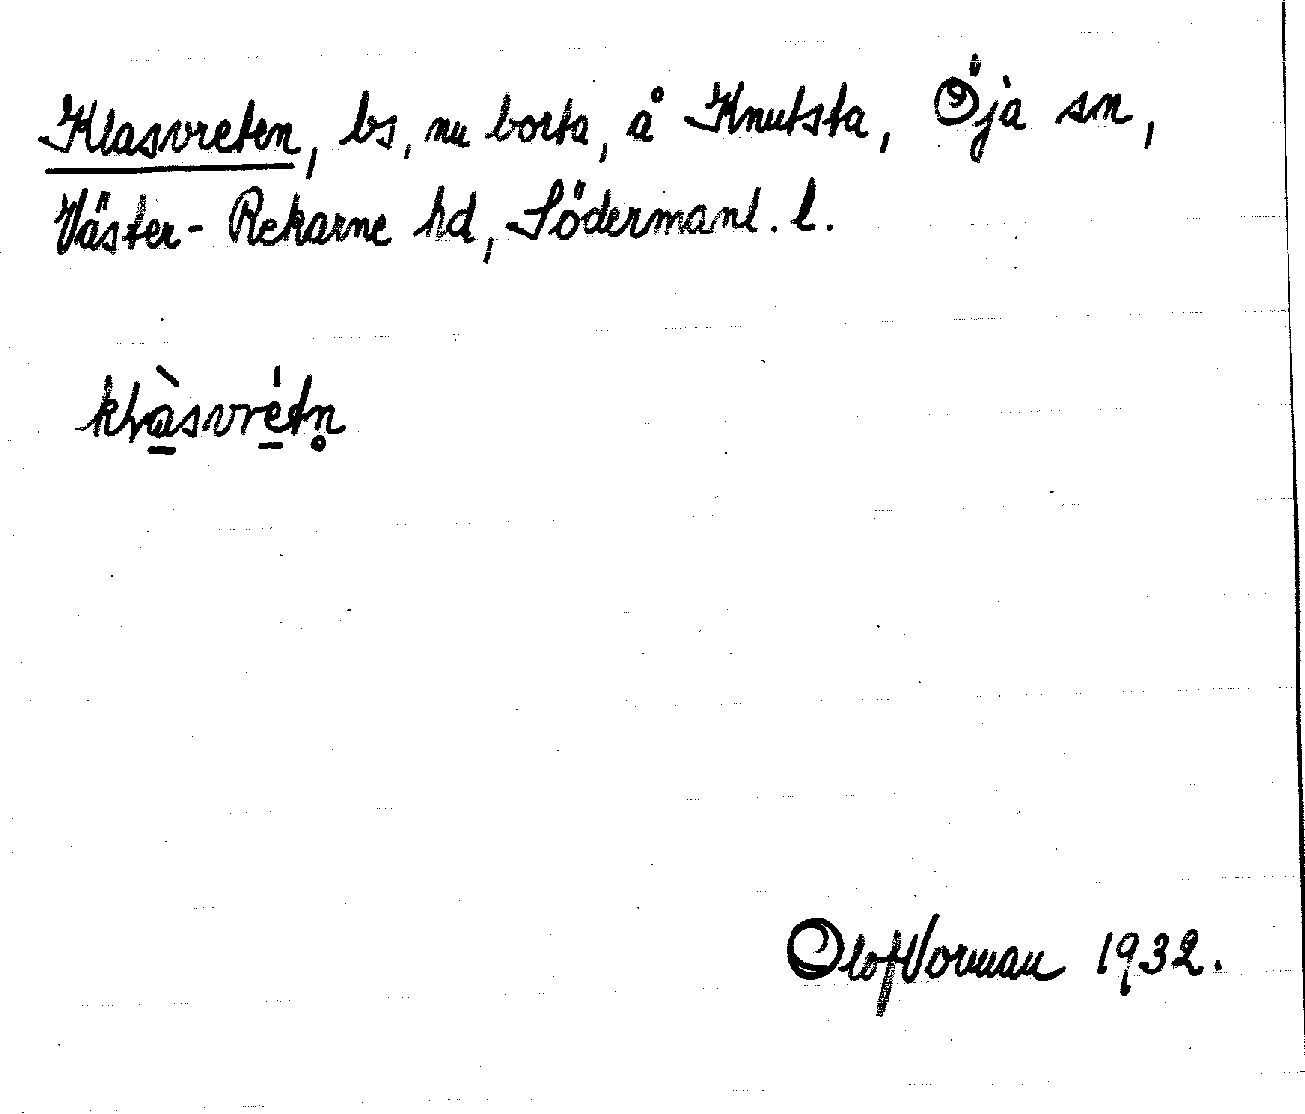 Klasvreten, bs, nu borta, å Knutsta, Öja sn,
Väster-Rekarne hd, Södermanl. l.
klà̱svré̱tn̥
Olof Vorman 1932.